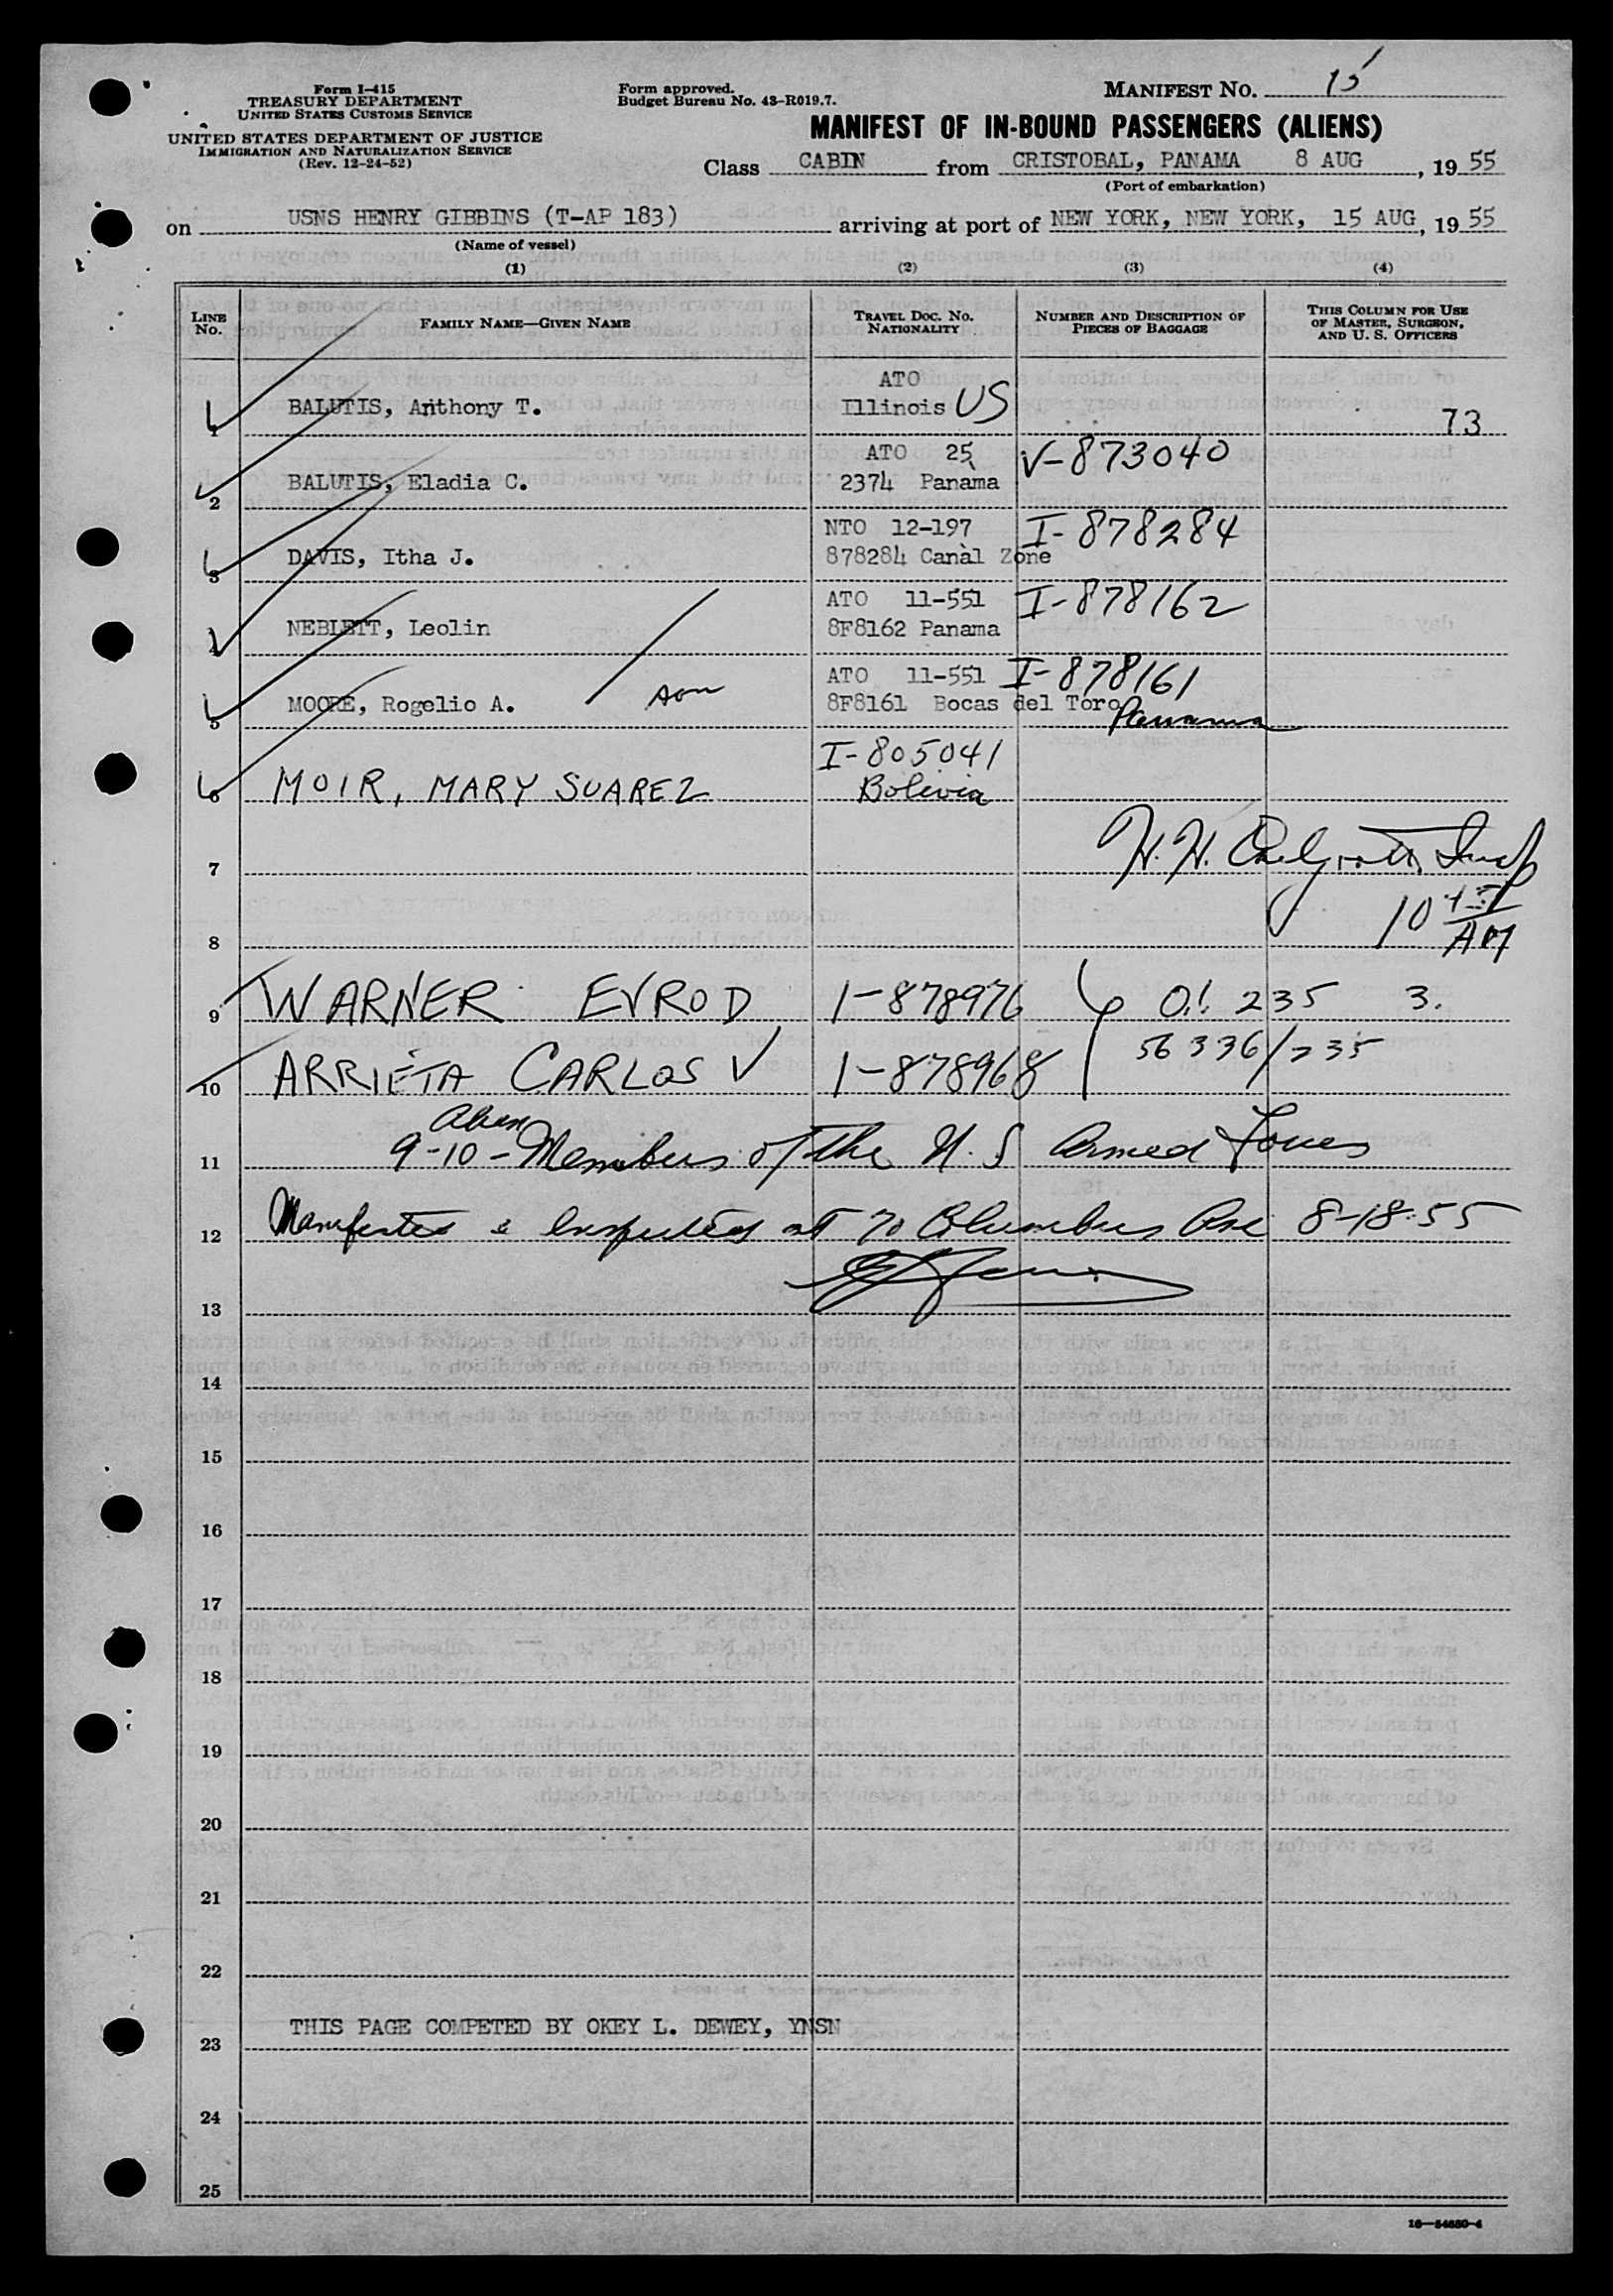 Form I-415
TREASURY DEPARTMENT
UNITED STATES CUSTOMS SERVICE
UNITED STATES DEPARTMENT OF JUSTICE
IMMIGRATION AND NATURALIZATION SERVICE
(Rev. 12-24-52)
Form approved.
Budget Bureau No. 43-R019.7.
MANIFEST NO. 15
MANIFEST OF IN-BOUND PASSENGERS (ALIENS)
Class CABIN from CRISTOBAL, PANAMA 8 AUG, 1955
(Port of embarkation)
on USNS HENRY GIBBINS (T-AP 183) arriving at port of NEW YORK, NEW YORK, 15 AUG, 1955
(Name of vessel)
(1) (2) (3) (4)
LINE NO. FAMILY NAME—GIVEN NAME TRAVEL DOC. NO. NATIONALITY NUMBER AND DESCRIPTION OF PIECES OF BAGGAGE THIS COLUMN FOR USE OF MASTER, SURGEON, AND U. S. OFFICERS
ATO
1 BALUTIS, Anthony T. Illinois US 73
ATO 25 V-873040
2 BALUTIS, Eladia C. 2374 Panama
NTO 12-197 I-878284
3 DAVIS, Itha J. 878284 Canal Zone
ATO 11-551 I-878162
4 NEBLETT, Leolin 8F8162 Panama
ATO 11-551 I-878161
5 MOORE, Rogelio A. son 8F8161 Bocas del Toro Panama
I-805041
6 MOIR, MARY SUAREZ Bolivia
7 H. H. Insp
8 10 AM
9 WARNER EVROD 1-878976 O.! 235 3.
56336/235
10 ARRIETA CARLOS V 1-878968
Alien
11 9-10 - Members of the U. S Armed Forces
12 Manifested & Inspected at 70 Columbus Ave 8-18-55
13
14
15
16
17
18
19
20
21
22
THIS PAGE COMPETED BY OKEY L. DEWEY, YNSN
23
24
25
16—54650-4